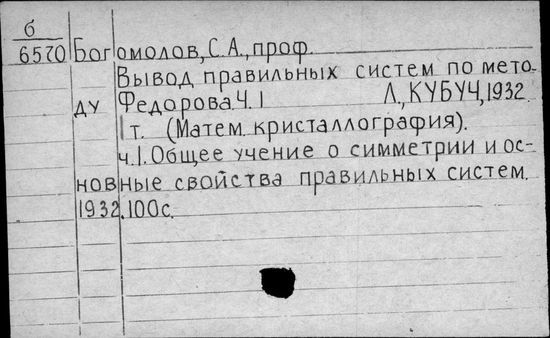 б
6520 Богомолов, С.А., проф.
Вывод правильных систем по мето-
ду Федорова. Ч. 1 Л., КУБУЧ, 1932.
1 т. (Матем. кристаллография).
ч. 1. Общее учение о симметрии и ос-
новные свойства правильных систем.
1932. 100 с.